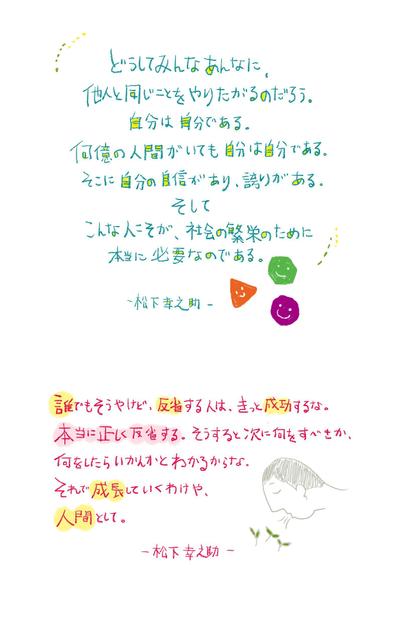 どうしてみんなあんなに、
他人と同じことをやりたがるのだろう。
自分は自分である。
何億の人間がいても自分は自分である。
そこに自分の自信があり、誇りがある。
そして
こんな人こそが、社会の繁栄のために
本当に必要なのである。
~松下幸之助-
誰でもそうやけど、反省する人は、きっと成功するな。
本当に正しく反省する。そうすると次に何をすべきか、
何をしたらいかんかとわかるからな。
それで成長していくわけや、
人間として。
-松下幸之助-